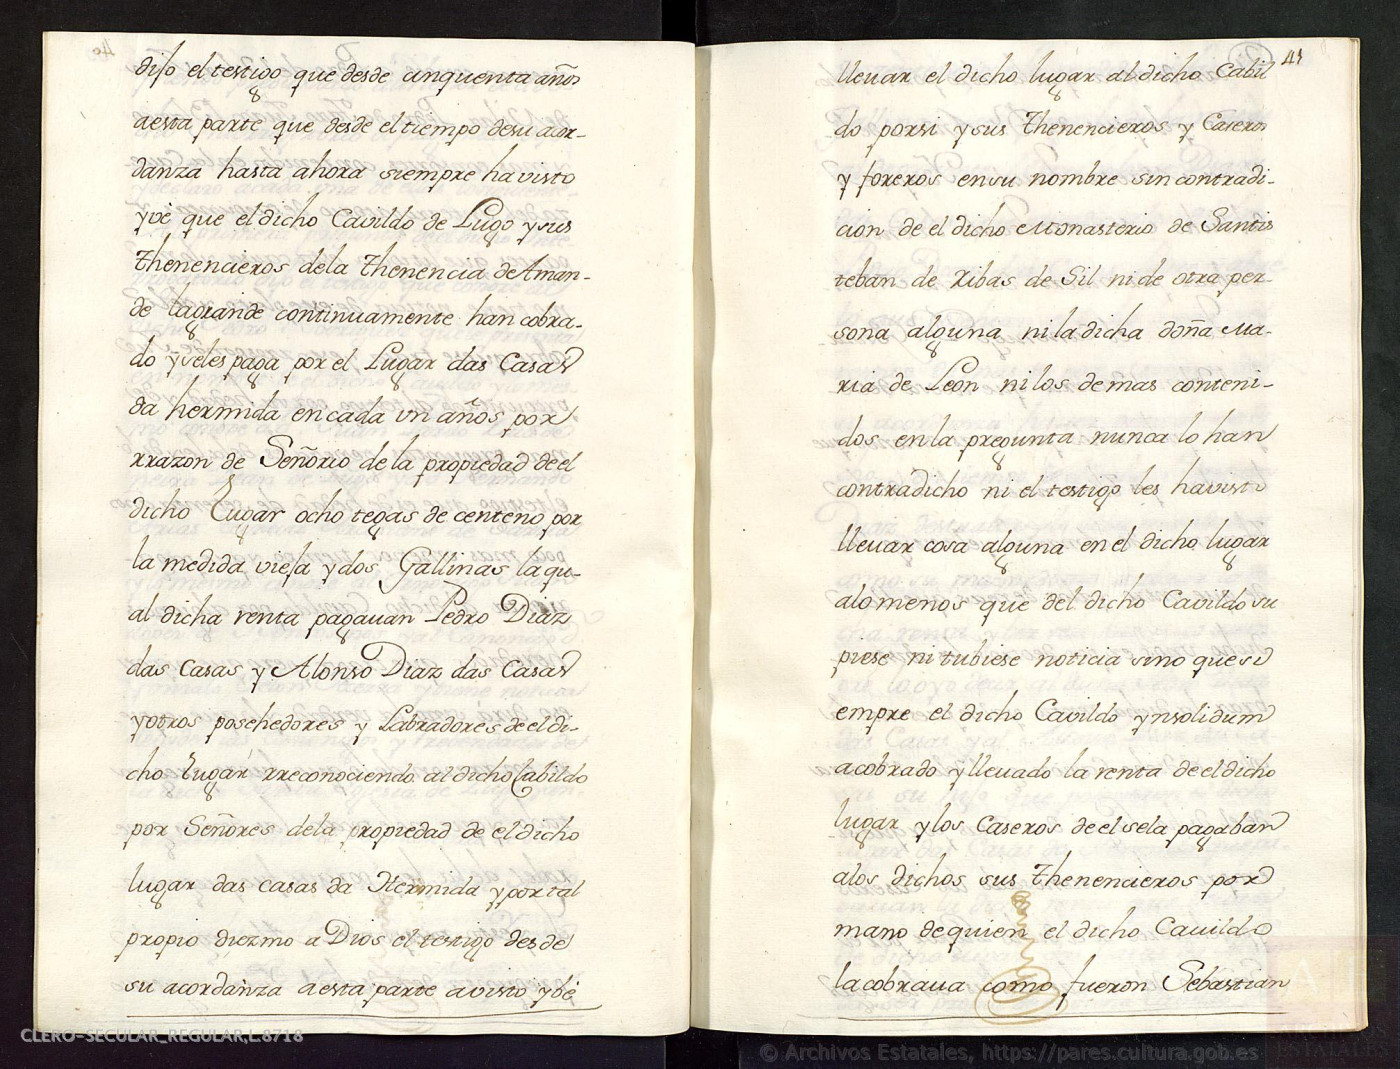 diso el testigo que desde cinquenta años
aesta parte que desde el tiempo desu acor-
danza hasta ahora siempre havisto
yvé que el dicho Cavildo de Lugo ysus
thenencieros dela thenencia de Aman-
de lagrande continuamente han cobra-
do yseles paga por el Lugar das Casas
da hermida encada un años por
rrazon de Señorio de la propiedad de el
dicho Lugar ocho tegas de centeno por
la medida viesa ydos Gallinas laqu-
al dicha renta pagavan Pedro Diaz
das Casas y Alonso Diaz das Casas
yotros posehedores y Labradores de el di-
cho lugar rreconociendo al dicho Cabildo
por Señores dela propiedad de el dicho
lugar das casas da Hermida ypor tal
propio diezmo a Dios el testigo desde
su acordanza aesta parte avisto ybé
41
llevar el dicho lugar al dicho Cabil
do porsi ysus thenencieros y Caseros
y foreros ensu nombre sin contradi-
cion de el dicho Monasterio de Santis
teban de Ribas de Sil ni de otra per-
sona alguna nila dicha doña Ma-
ria de Leon nilos demas conteni-
dos enla pregunta nunca lo han
contradicho ni el testigo les havisto
llevar cosa alguna en el dicho lugar
alomenos que del dicho Cavildo su
piese ni tubiese noticia sino que si
empre el dicho Cavildo ynsolidum
acobrado yllevado la renta de el dicho
lugar ylos Caseros de el sela pagaban
alos dichos sus thenencieros por
mano de quien el dicho Cavildo
lacobrava como fueron Sebastian
CLERO-SECULAR_REGULAR,L.8718
© Archivos Estatales, https://pares.cultura.gob.es